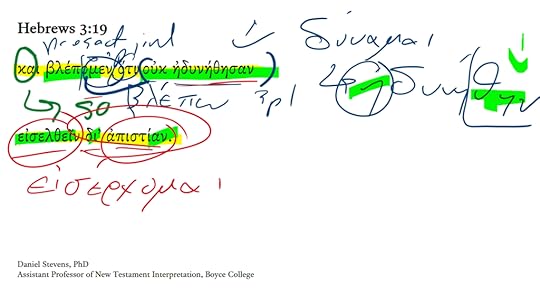 Hebrews 3:19
present ind
δύναμαι
και βλέπομεν ὅτι οὐκ ἠδυνήθησαν
so βλέπω
εἰσελθεῖν δι' ἀπιστίαν.
εἰσερχομαι
Daniel Stevens, PhD
Assistant Professor of New Testament Interpretation, Boyce College